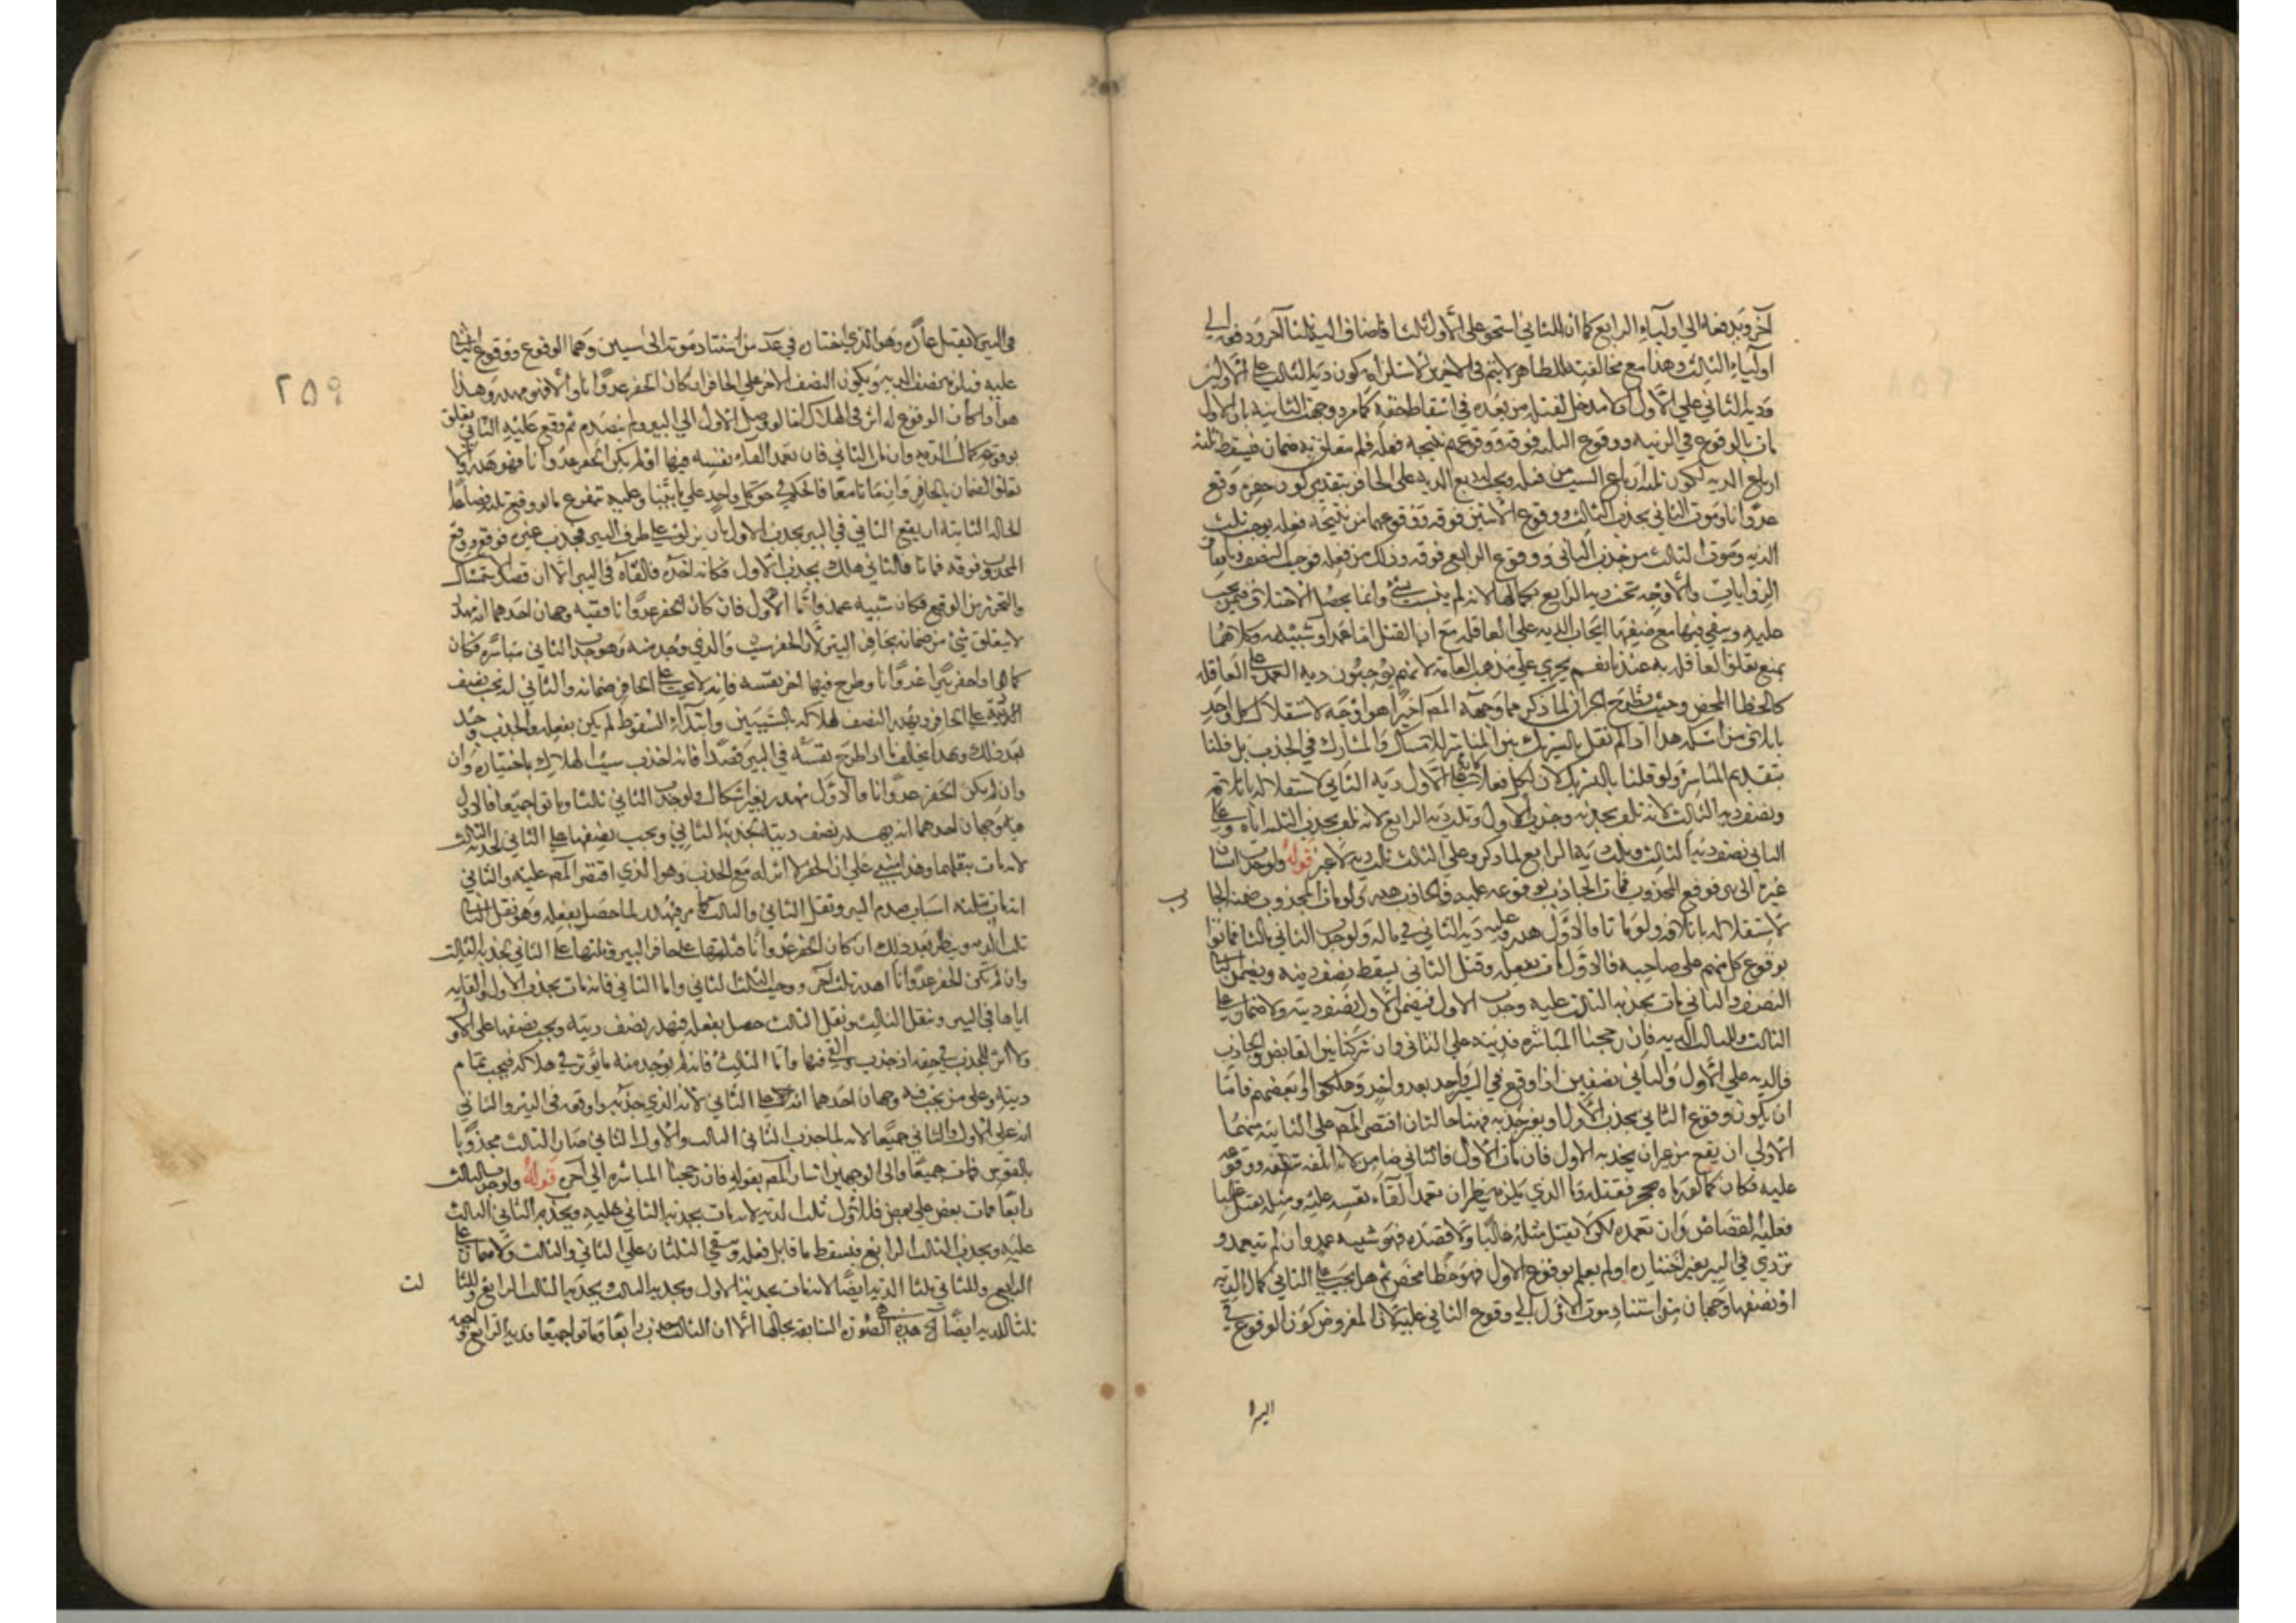 آخر ويدفعانه الى اولياء الرابع كما ان الثاني استحق على الاول ثلثا فاضاف اليه ثلثا آخر ودفعه الى
اولياء الثالث وهذا مع مخالفته للظاهر لا يتم في الاخير لاستلزامه كون دية الثالث على الاولين
ودية الثاني على الاول ولا مدخل لقتله من بعده في اسقاط حقه كما مر ووجهت الثانية بان الاول
مات بالوقوع في الزبية ووقوع الثلثة فوقه ووقوعهم نتيجة فعله فلم يتعلق به ضمان فيسقط ثلثة
ارباع الدية لكون ثلثة ارباع السبب من فعله ويجب ربع الدية على الحافر بتقدير كون حفره وقع
عدوانا وموت الثاني بجذب الثالث ووقوع الاثنين فوقه ووقوعهما من نتيجة فعله يوجب ثلث
الدية وموت الثالث من جذب الثاني ووقوع الرابع فوقه وذلك من فعله فوجب النصف
الروايات والاوجه تحت دية الرابع بكمالها لانه لم ينسب شئ وانما يحصل الاختلاف فيمن يجب
عليه ويبقى فيها مع ضعفها ايجاب الدية على العاقلة مع ان القتل اما عمد او شبيهه وكلاهما
يمنع تعلق العاقلة به عندنا نعم يجري على مذهب العامة لانهم يوجبون دية العمد على العاقلة
كالخطا المحض وحيث يطرح الخبران لما ذكر فما وجهه المص اخيرا هو اوجه لاستقلال كل واحد
باتلاف من امسكه هذا اذا لم نقل بالتشريك بين المباشر للامساك والمشارك في الجذب بل قلنا
بتقديم المباشر ولو قلنا بالتشريك لان لكل فعلا كان على الاول دية الثاني لاستقلاله باتلافه
ونصف دية الثالث لانه تلف بجذبه وجذب الاول وثلث دية الرابع لانه تلف بجذب الثلثة اياه وعلى
الثاني نصف دية الثالث وثلث دية الرابع لما ذكر وعلى الثالث ثلث دية لا غير قوله ولو جذب انسان
غيره الى بئر فوقع المجذوب فمات الجاذب بوقوعه عليه فالجاذب هدر ولو مات المجذوب ضمنه الجا
ذب
لاستقلاله باتلافه ولو ماتا فالاول هدر وعليه دية الثاني في ماله ولو جذب الثاني ثالثا فماتوا
بوقوع كل منهم على صاحبه فالاول مات بفعله وفعل الثاني يسقط نصف ديته ويضمن الثاني
النصف والثاني مات بجذبه الثالث عليه وجذب الاول فيضمن الاول نصف ديته ولا ضمان على
الثالث وللثالث الدية فان رجحنا المباشرة فديته على الثاني وان شركنا بين القابض والجاذب
فالدية على الاول والثاني نصفين اذا وقع في البئر واحد بعد واحد وهلكوا او بعضهم فاما
ان يكون وقوع الثاني بجذب الاول او بغير جذبه فهنا حالتان اقتصر المص على الثانية منهما
الاولى ان يقع من غير ان يجذبه الاول فان مات الاول فالثاني ضامن لانه اتلفه بثقله ووقوعه
عليه فكان كما لو رماه بحجر فقتله وما الذي يلزمه ينظر ان تعمد القاء نفسه عليه ومثله يقتل غالبا
فعليه القصاص وان تعمده لكن لا يقتل مثله غالبا ولا قصده فهو شبيه عمد وان لم يتعمد و
تردى في البئر بغير اختياره او لم يعلم بوقوع الاول فهو خطا محض ثم هل يجب على الثاني كمال الدية
او نصفها وجهان من استناد موت الاول الى وقوع الثاني عليه لان المفروض كون الوقوع في
البئر لا
٢٥٩
في البئر لا يقتل عادة وهو الذي اختاره في عد من استناد موته الى سببين وهما الوقوع ووقوع الثاني
عليه فيلزمه نصف الدية ويكون النصف الاخر على الحافر ان كان الحفر عدوانا والا فهو مهدر وهذا
هو اذا كان الوقوع له اثر في الهلاك اما لو وصل الاول الى البئر ولم ينصدم ثم وقع عليه الثاني تعلق
بوقوعه كمال الدية وان مات الثاني فان تعمد القاء نفسه فيها او لم يكن الحفر عدوانا فهو هدر والا
تعلق الضمان بالحافر وان ماتا معا فالحكم في حق كل واحد على ما بينا وعليه تتفرع ما لو وقع ثلثة فصاعدا
الحالة الثانية ان يقع الثاني في البئر بجذب الاول بان يزلق على طرف البئر فيجذب غيره فوقع ووقع
المجذوب فوقه فماتا فالثاني هلك بجذب الاول فكانه اخذه فالقاه في البئر الا ان قصد الاستمساك
والتحرز من الوقوع فكان شبيه عمد واما الاول فان كان الحفر عدوانا ففيه وجهان احدهما انه مهدر
لا يتعلق شئ من ضمانه بحافر البئر لان الحفر سبب والذي وجد منه وهو جذب الثاني مباشرة فكان
كما اذا حفر بئرا عدوانا وطرح فيها اخر نفسه فانه لا يجب على الحافر ضمانه والثاني انه يجب نصف
الدية على الحافر ويهدر النصف لهلاكه بالسببين وابتداء السقوط لم يكن بفعله والجذب وجد
بعد ذلك وبهذا يخالف اذا طرح نفسه في البئر قصدا فانه اخذ في سبب الهلاك باختياره وان
وان لم يكن الحفر عدوانا فالاول مهدر بغير اشكال ولو جذب الثاني ثالثا وماتوا جميعا فالاول
فيه وجهان احدهما انه يهدر نصف ديته بجذبه الثاني ويجب نصفها على الثاني لجذبه الثالث
لانه مات بثقلهما وهذا يبنى على ان الحفر لا اثر له مع الجذب وهو الذي اقتصر المص عليه والثاني
انه مات بثلثة اسباب صدم البئر وثقل الثاني والثالث كما مر فيهدر لما حصل بفعله وهو ثقل الثاني
ثلث الدية وينظر بعد ذلك ان كان الحفر عدوانا فثلثها على حافر البئر وثلثها على الثاني بجذبه الثالث
وان لم يكن الحفر عدوانا اهدر ثلث آخر ووجب الثلث الثاني واما الثاني فانه مات بجذب الاول والقايه
اياه في البئر وبثقل الثالث وثقل الثالث حصل بفعله فيهدر نصف ديته ويجب نصفها على الاول
ولا اثر للجذب في حقه اذ جذب والقي فيها واما الثالث فانه لم يوجد منه ما يؤثر في هلاكه فيجب تمام
ديته وعلى من يجب فيه وجهان احدهما انه على الثاني لانه الذي جذبه واوقعه في البئر والثاني
انه على الاول والثاني جميعا لانه لما جذب الثاني الثالث والاول الثاني صار الثالث مجذوبا
بالقوتين فمات جميعا والى الوجهين اشار المص بقوله فان رجحنا المباشرة الى آخره قوله ولو جذب الثالث
رابعا فمات بعض على بعض فللاول ثلثا الدية لانه مات بجذبه الثاني عليه وبجذب الثاني الثالث
عليه وبجذب الثالث الرابع فيسقط ما قابل فعله ويبقى الثلثان على الثاني والثالث ولا ضمان على
الرابع وللثاني ثلثا الدية ايضا لانه مات بجذب الاول وبجذبه الثالث وبجذب الثالث الرابع وللثا
لث
ثلثا الدية ايضا الخ هذه الصورة السابقة بحالها الا ان الثالث جذب رابعا وماتوا جميعا فدية الرابع واجبة